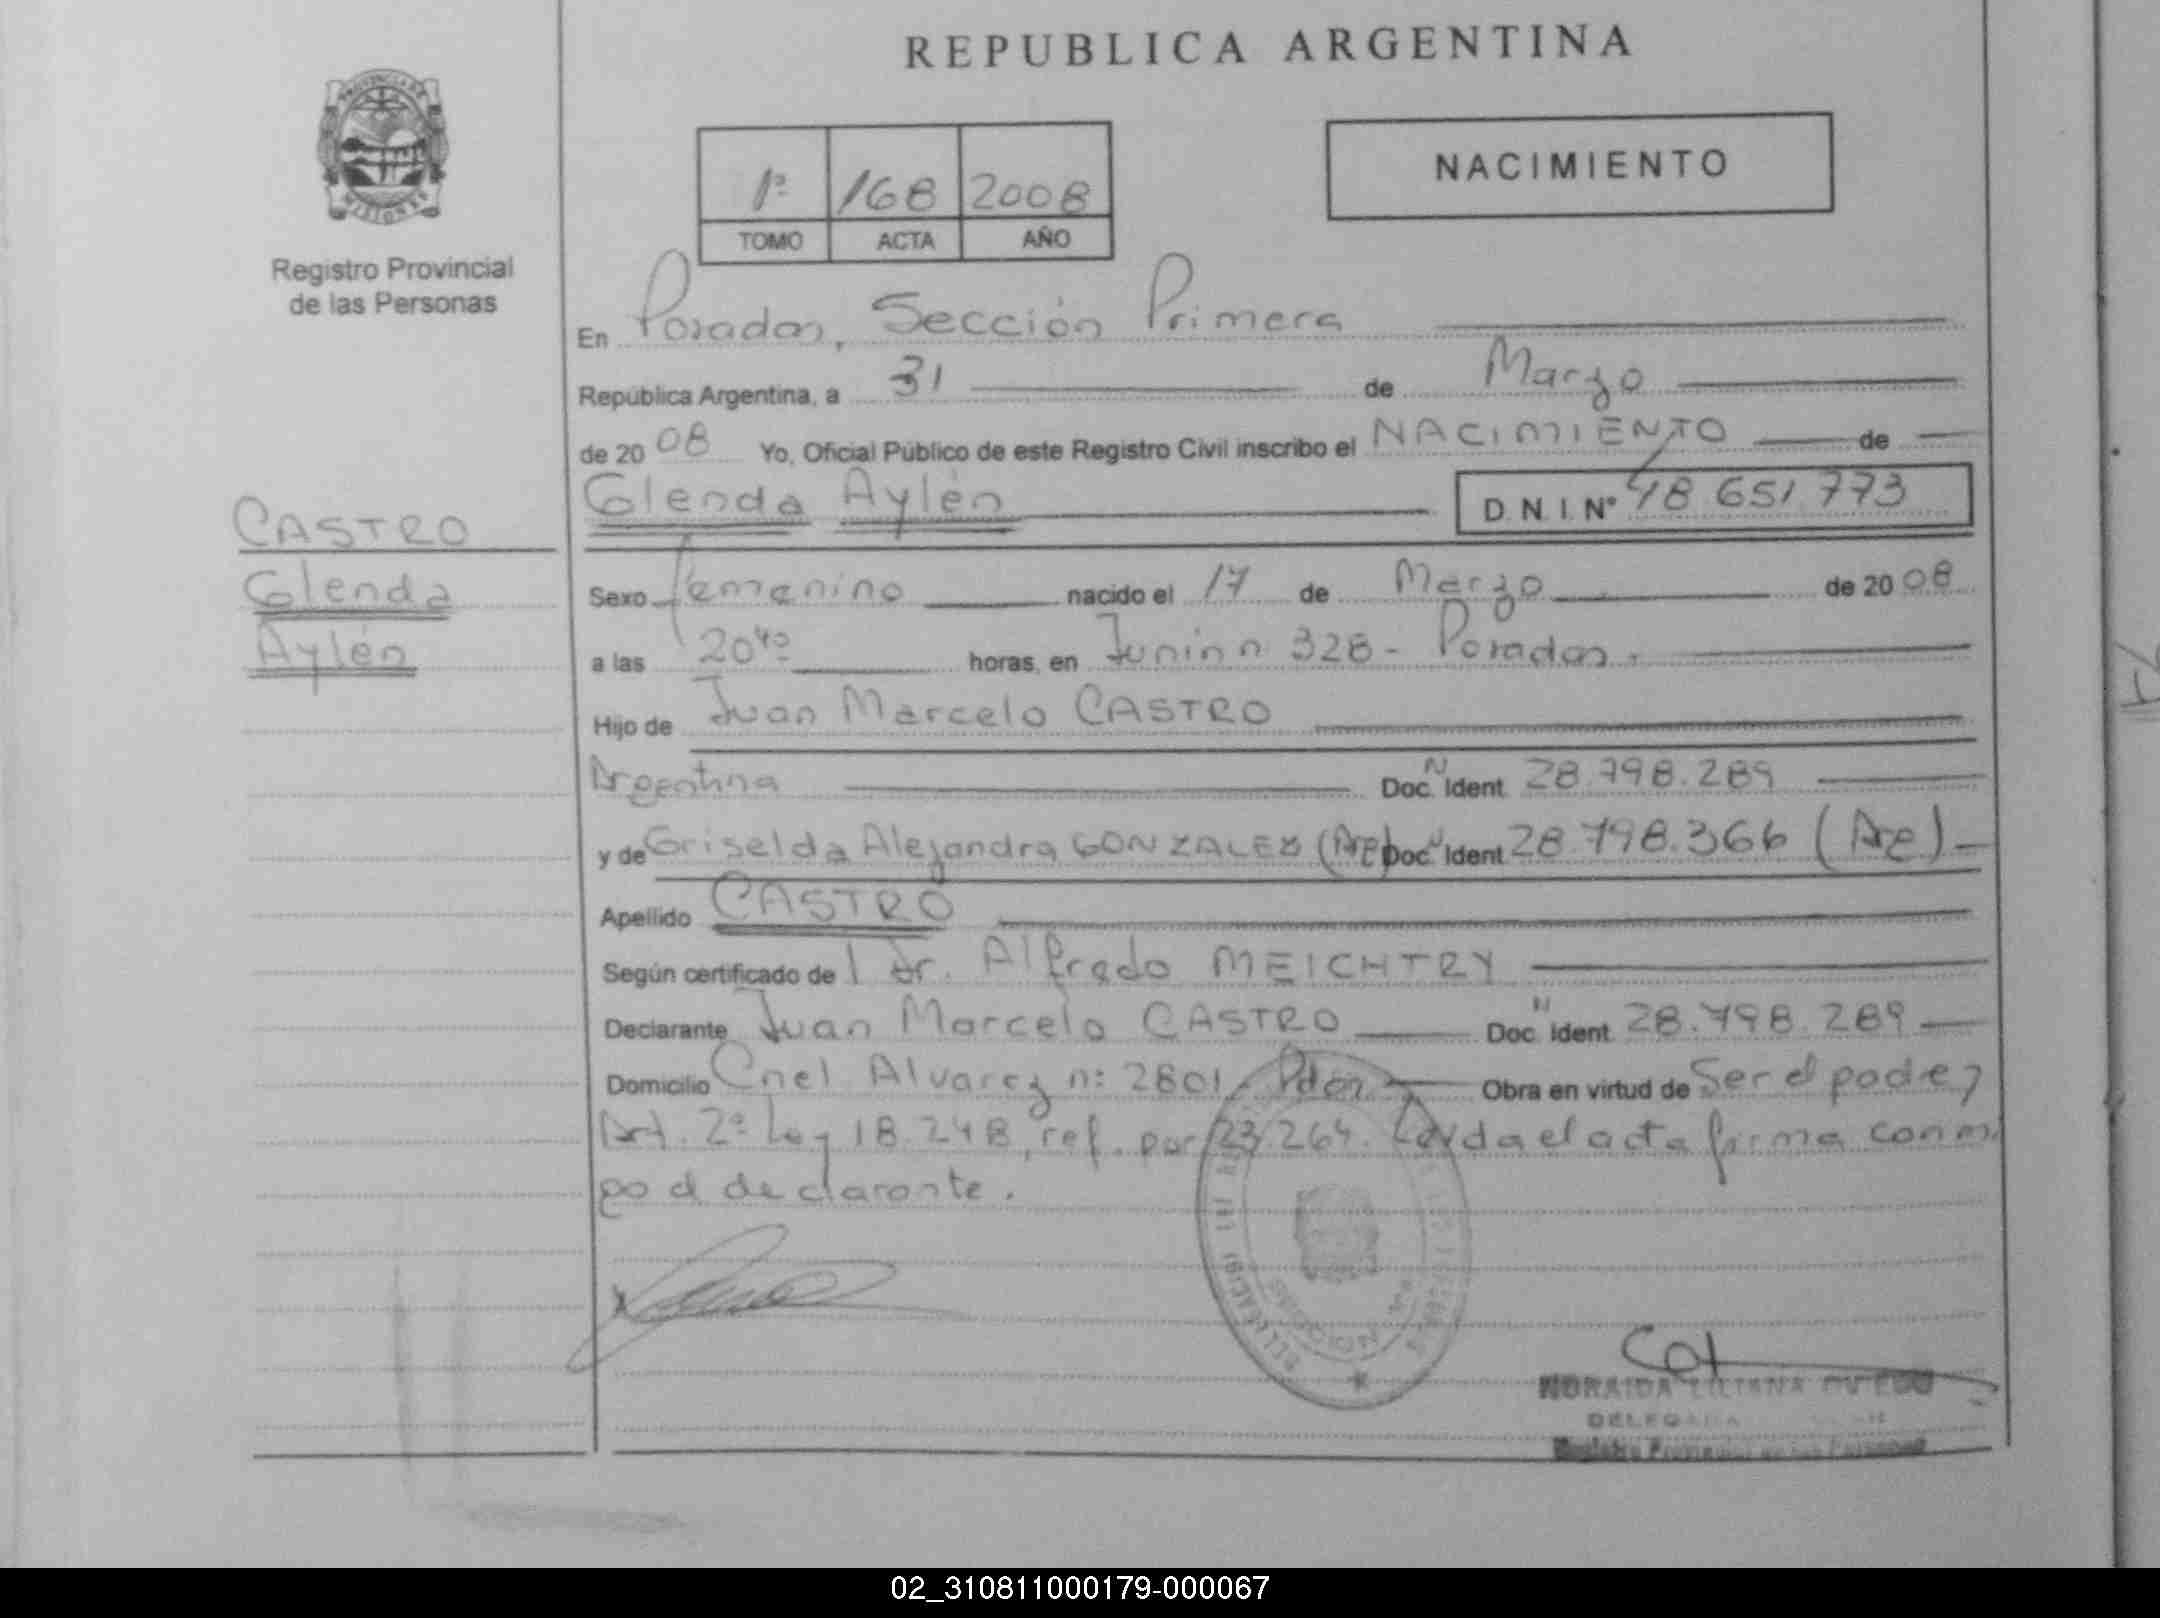 REPUBLICA ARGENTINA
PROVINCIA DE
MISIONES
Registro Provincial
de las Personas
1ª 168 2008
TOMO ACTA AÑO
NACIMIENTO
En Posadas, Sección Primera
República Argentina, a 31 de Marzo
de 2008 Yo, Oficial Público de este Registro Civil inscribo el NACIMIENTO de
Glenda Aylén D.N.I. Nº 48 651 773
CASTRO
Glenda
Aylén
Sexo femenino nacido el 17 de Marzo de 2008
a las 20⁴⁰ horas, en Junín n 328 - Posadas.
Hijo de Juan Marcelo CASTRO
Argentina Doc. N Ident 28.798.289
y de Griselda Alejandra GONZALEZ (Arg) Doc. N Ident 28.798.366 (Arg)
Apellido CASTRO
Según certificado de l Dr. Alfredo MEICHTRY
Declarante Juan Marcelo CASTRO Doc. N Ident 28.798.289
Domicilio Cnel Alvarez n: 2801 - Pdas Obra en virtud de Ser el padre y
Art. 2º Ley 18.248, ref. por 23.264. Leída el acta firma conmi
go el declarante.
NORAIDA LILIANA OVIEDO
DELEGADA
Registro Provincial de las Personas
02_310811000179-000067